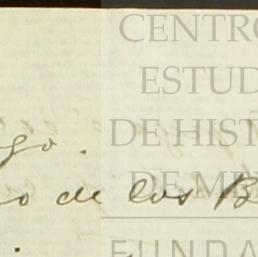 CENTRO
ESTUD
DE HIST
go.
o de los B
DE M
FUNDA